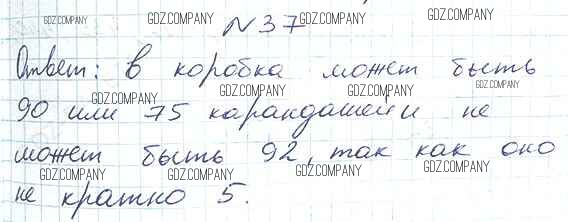 №37
Ответ: в коробка может быть
90 или 75 карандашей и не
может быть 92, так как оно
не кратно 5.
GDZ.COMPANY GDZ.COMPANY GDZ.COMPANY GDZ.COMPANY
GDZ.COMPANY GDZ.COMPANY GDZ.COMPANY GDZ.COMPANY
GDZ.COMPANY GDZ.COMPANY GDZ.COMPANY GDZ.COMPANY